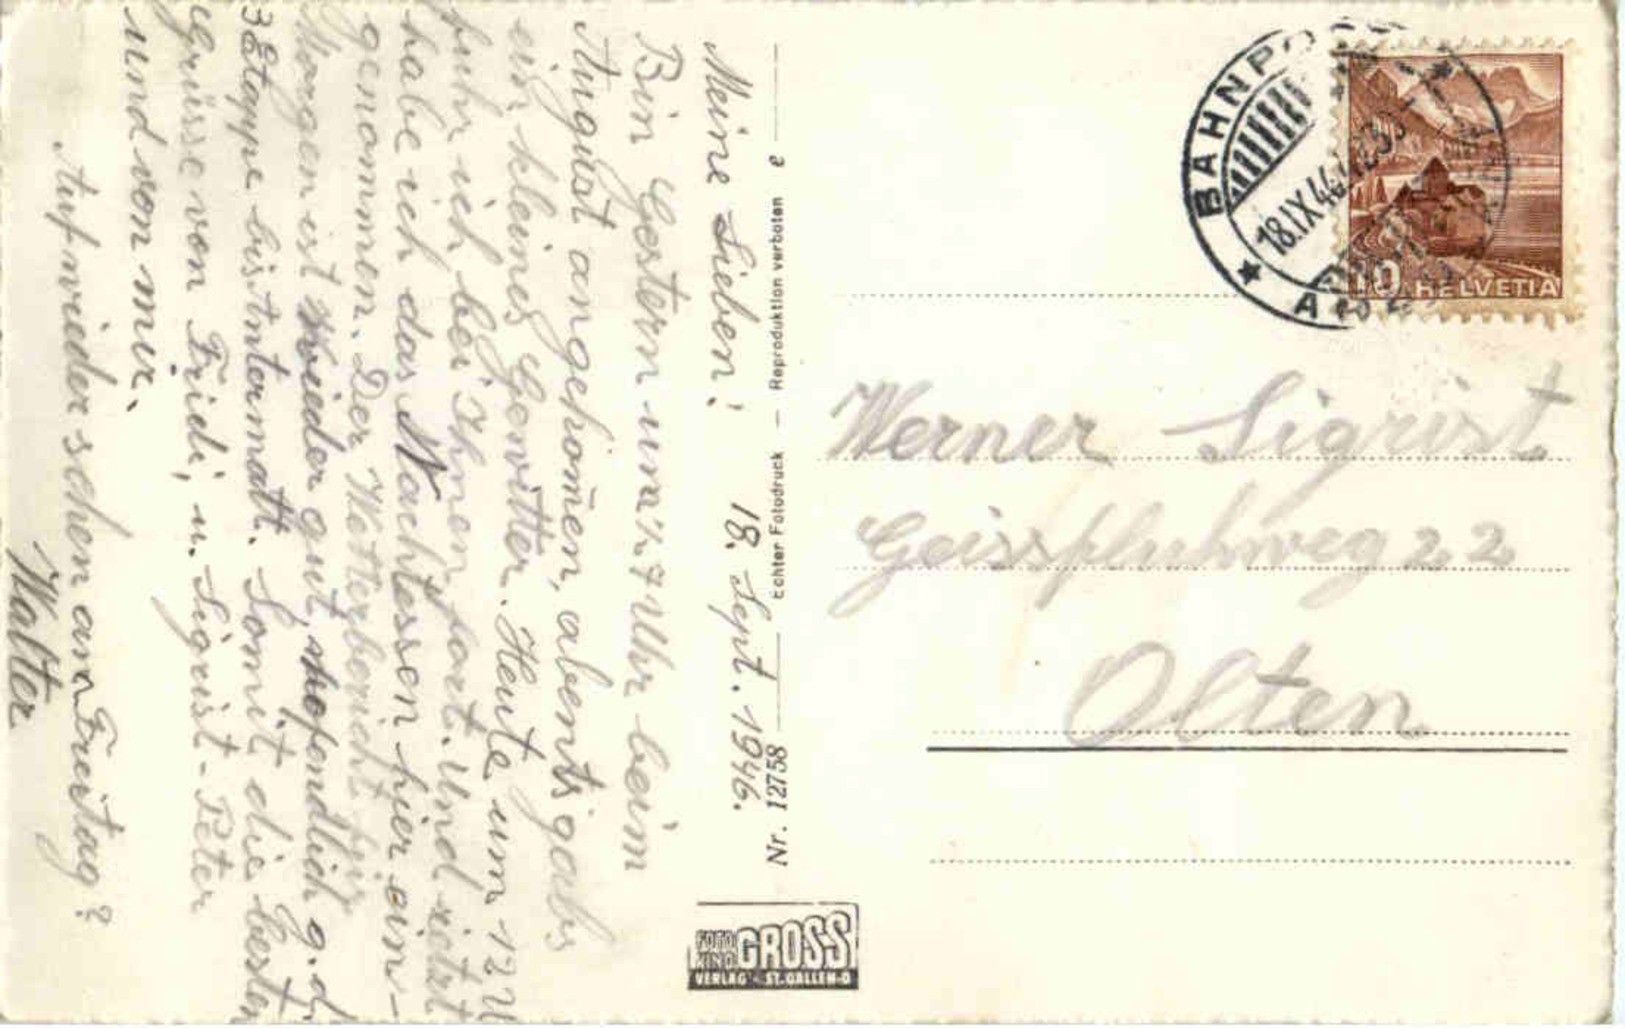 Meine Lieben!
18. Sept. 1946.
Bin Gestern um 1/4 7 Uhr beim
August angekom̄en, abents gabs
ein kleines Gewitter. Heute um 12 U
fuhr ich bei Ihnen fort. Und jetzt
habe ich das Nachtessen hier ein-
genommen. Der Wetterbericht für
Morgen ist wieder gut, hofendlich g. d.
3 Etappe bis Intermatt. Somit die besten
Grüsse von Fridi, u. Sigrist-Peter
und von mir.
Auf wieder sehen am Freitag?
Walter
Nr. 12758 Echter Fotodruck — Reproduktion verboten e
FOTO
KINO GROSS
VERLAG ST. GALLEN-O
BAHNPO
18.IX.46
A
10 HELVETIA
Werner Sigrist
Geissfluhweg 22
Olten